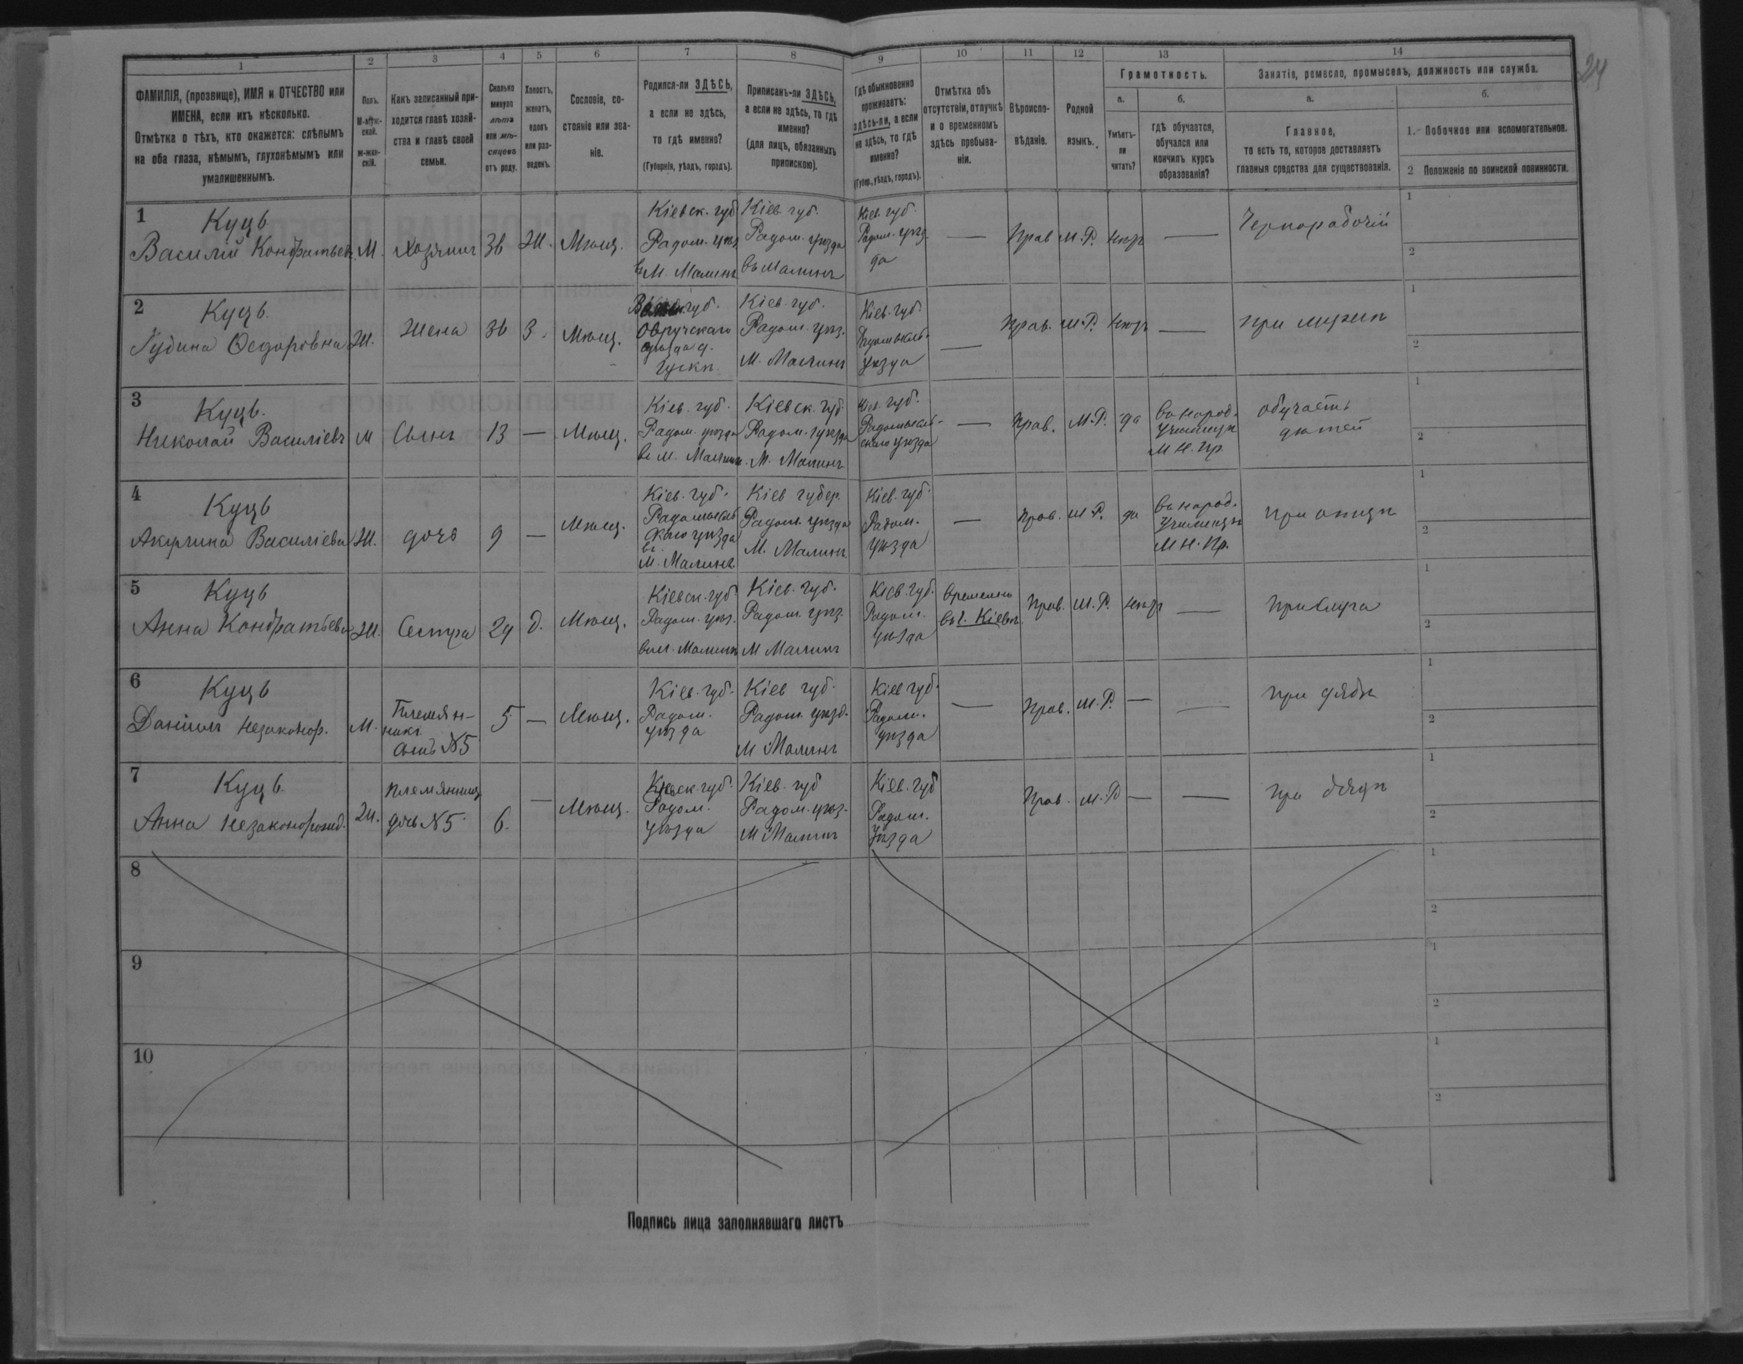 24
1
2
3
4
5
6
7
8
9
10
11
12
13
14
ФАМИЛІЯ, (прозвище), ИМЯ и ОТЧЕСТВО или
ИМЕНА, если ихъ нѣсколько.
Отмѣтка о тѣхъ, кто окажется: слѣпымъ
на оба глаза, нѣмымъ, глухонѣмымъ или
умалишеннымъ.
Полъ.
М-мужс-
ской.
Ж-жен-
скій.
Какъ записанный при-
ходится главѣ хозяй-
ства и главѣ своей
семьи.
Сколько
минуло
лѣтъ
или мѣ-
сяцевъ
отъ роду.
Холостъ,
женатъ,
вдовъ
или раз-
веденъ.
Сословіе, со-
стояніе или зва-
ніе.
Родился-ли ЗДѢСЬ,
а если не здѣсь,
то гдѣ именно?
(Губернія, уѣздъ, городъ).
Приписанъ-ли ЗДѢСЬ,
а если не здѣсь, то гдѣ
именно?
(для лицъ, обязанныхъ
припискою).
Гдѣ обыкновенно
проживаетъ:
здѣсь-ли, а если
не здѣсь, то гдѣ
именно?
(Губер., уѣздъ, городъ).
Отмѣтка объ
отсутствіи, отлучкѣ
и о временномъ
здѣсь пребыва-
ніи.
Вѣроиспо-
вѣданіе.
Родной
языкъ.
Грамотность.
а.
Умѣетъ-
ли
читать?
б.
гдѣ обучается,
обучался или
кончилъ курсъ
образованія?
Занятіе, ремесло, промыселъ, должность или служба.
а.
Главное,
то есть то, которое доставляетъ
главныя средства для существованія.
б.
1. Побочное или вспомогательное.
2 Положеніе по воинской повинности.
1
Куцъ
Василій Кондратьев.
М.
Хозяинъ
36
Ж.
Мѣщ.
Кіевск. губ
Радом. уѣз.
въ М. Малинѣ
Кіев. губ.
Радом. уѣзда
въ Малинѣ
Кіев. губ.
Радом. уѣз
да
—
Прав
М.Р.
нѣтъ
—
Чернорабочій
1
2
2
Куцъ.
Ѳедоровна
Ж.
Жена
36
З.
Мѣщ.
губ.
Овручскаго
уѣзда д.
Кіев. губ.
Радом. уѣз.
М. Малинъ
Кіев. губ.
Радомысль-
уѣзда
—
Прав.
М.Р.
нѣтъ
—
при мужѣ
1
2
3
Куцъ.
Николай Василіевъ
М
Сынъ
13
—
Мѣщ.
Кіев. губ.
Радом. уѣзда
въ М. Малинѣ
Кіевск. губ
Радом. уѣзда
М. Малинъ
Кіев. губ.
Радомысль-
скаго уѣзда
—
Прав.
М.Р.
да
въ народ.
училищѣ
М.Н.Пр
обучаетъ
дѣтей
1
2
4
Куцъ
Акулина Василіева
Ж.
дочь
9
—
Мѣщ.
Кіев. губ.
Радомысль
скаго уѣзда
въ
М. Малинѣ
Кіев губер.
Радом. уѣзда
М. Малинъ
Кіев. губ.
Радом.
уѣзда
—
Прав.
М.Р.
да
въ народ.
училищѣ
М.Н.Пр.
при отцѣ
1
2
5
Куцъ
Анна Кондратьева
Ж.
Сестра
24
д.
Мѣщ.
Кіевск. губ
Радом. уѣз.
въ М. Малинѣ
Кіев. губ.
Радом. уѣз.
М Малинъ
Кіев. губ.
Радом.
уѣзда
временно
въ г. Кіевѣ
Прав.
М.Р.
нѣтъ
—
прислуга
1
2
6
Куцъ
Даніилъ незаконор.
М.
Племян-
никъ
сынъ №5
5
—
Мѣщ.
Кіев. губ.
Радом.
уѣзда
Кіев губ.
Радом. уѣзд.
М Малинъ
Кіев губ.
Радом.
уѣзда
—
Прав.
М.Р.
—
—
при дядѣ
1
2
7
Куцъ.
Анна Незаконорожд.
Ж.
племянниц
дочь №5
6.
—
Мѣщ.
Кіевск. губ.
Радом.
уѣзда
Кіев. губ
Радом. уѣз.
М Малинъ
Кіев. губ
Радом.
уѣзда
Прав.
М.Р
—
—
при дядѣ
1
2
8
1
2
9
1
2
10
1
2
Подпись лица заполнявшаго листъ